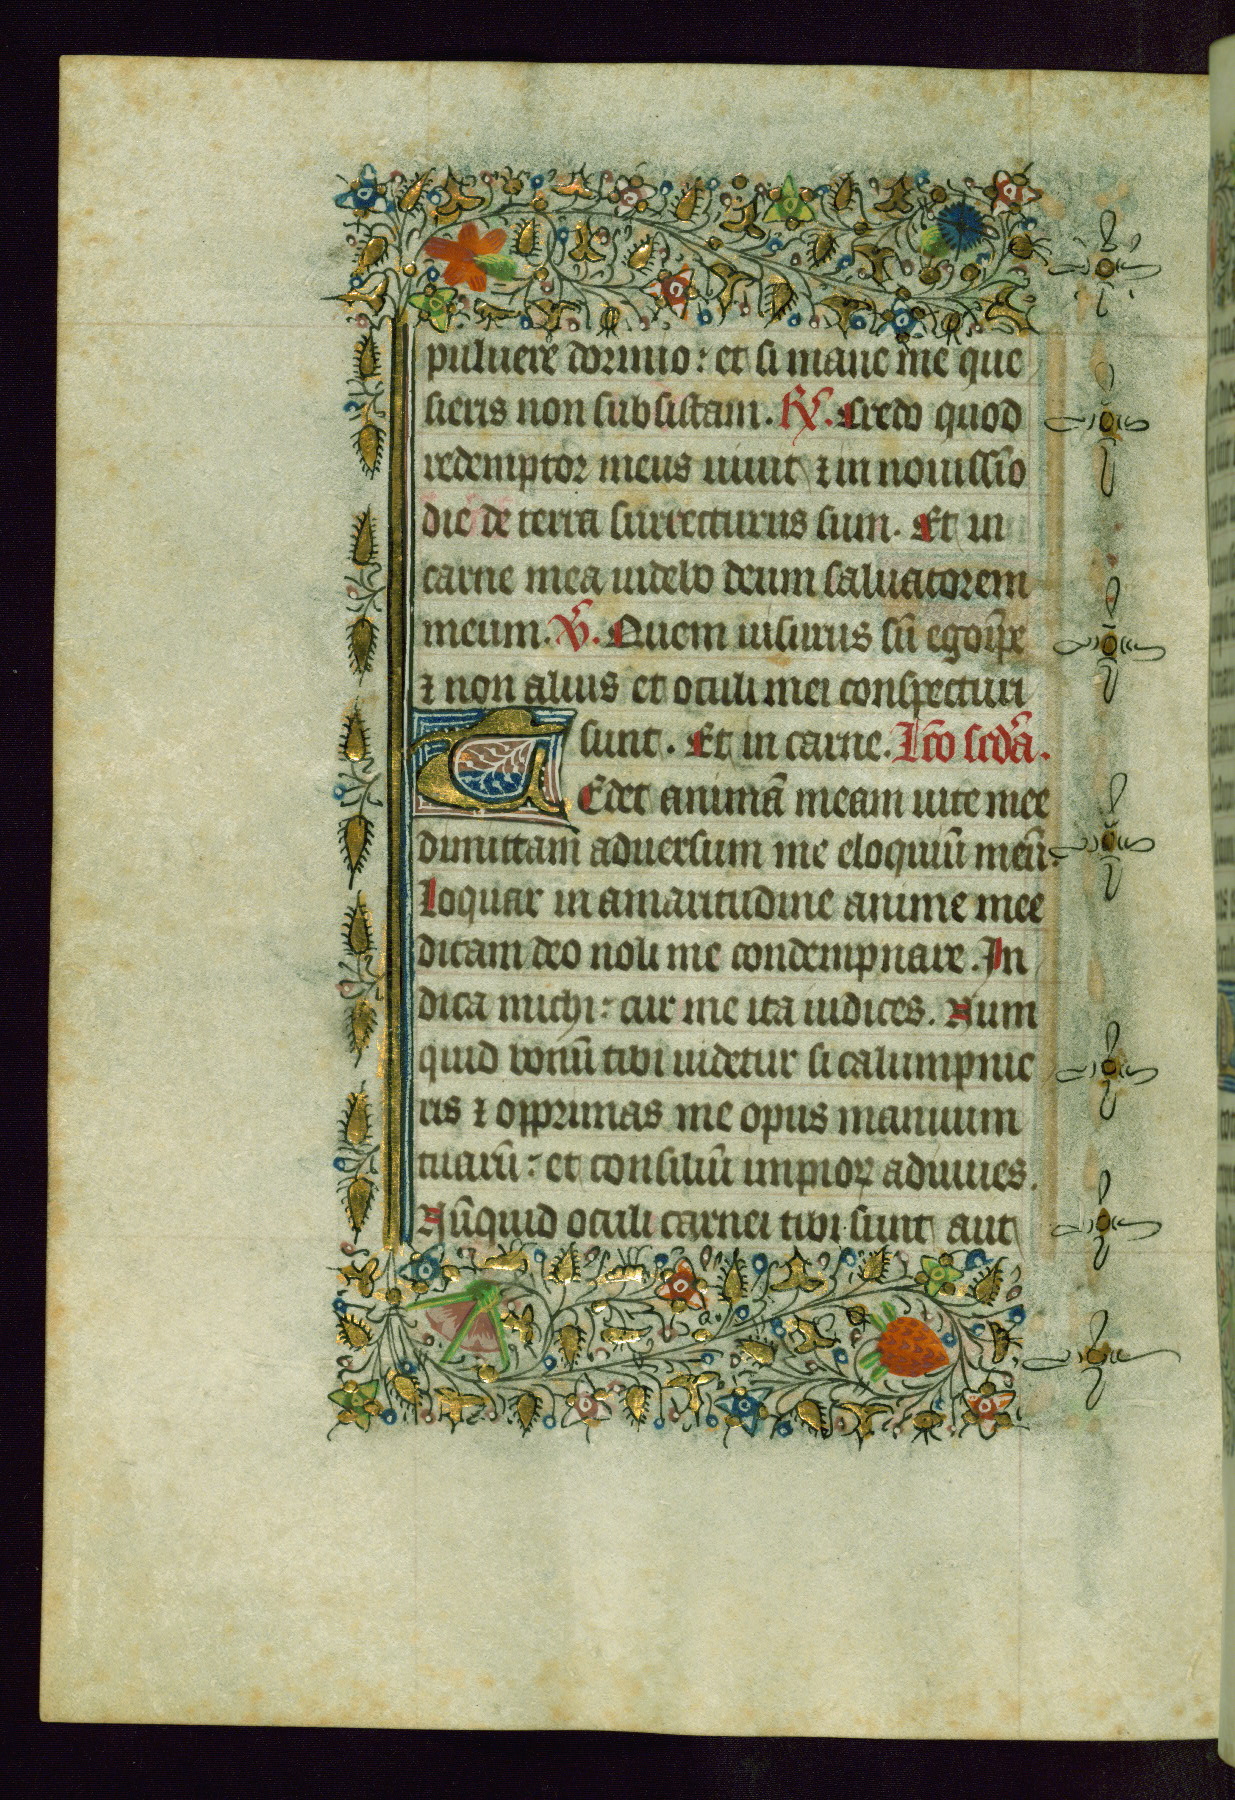 puluere dormio: et si mane me que
sieris non subsistam. R̃. Credo quod
redemptor meus uiuit ⁊ in nouissĩo
die de terra surrecturus sum. Et in
carne mea uidebo deum saluatorem
meum. Ṽ. Quem uisurus sũ ego ip̃e
⁊ non alius et oculi mei conspecturi
sunt. Et in carne. Lc̃o scd̃a.
TEdet animã meam uite mee
dimittam aduersum me eloquiũ meũ.
Loquar in amaritudine anime mee
dicam deo noli me condempnare. In
dica michi: cur me ita iudices. Num
quid bonũ tibi uidetur si calumpnie
ris ⁊ opprimas me opus manuum
tuarũ: et consiliũ impioꝝ adiuues.
Nũquid oculi carnei tibi sunt aut